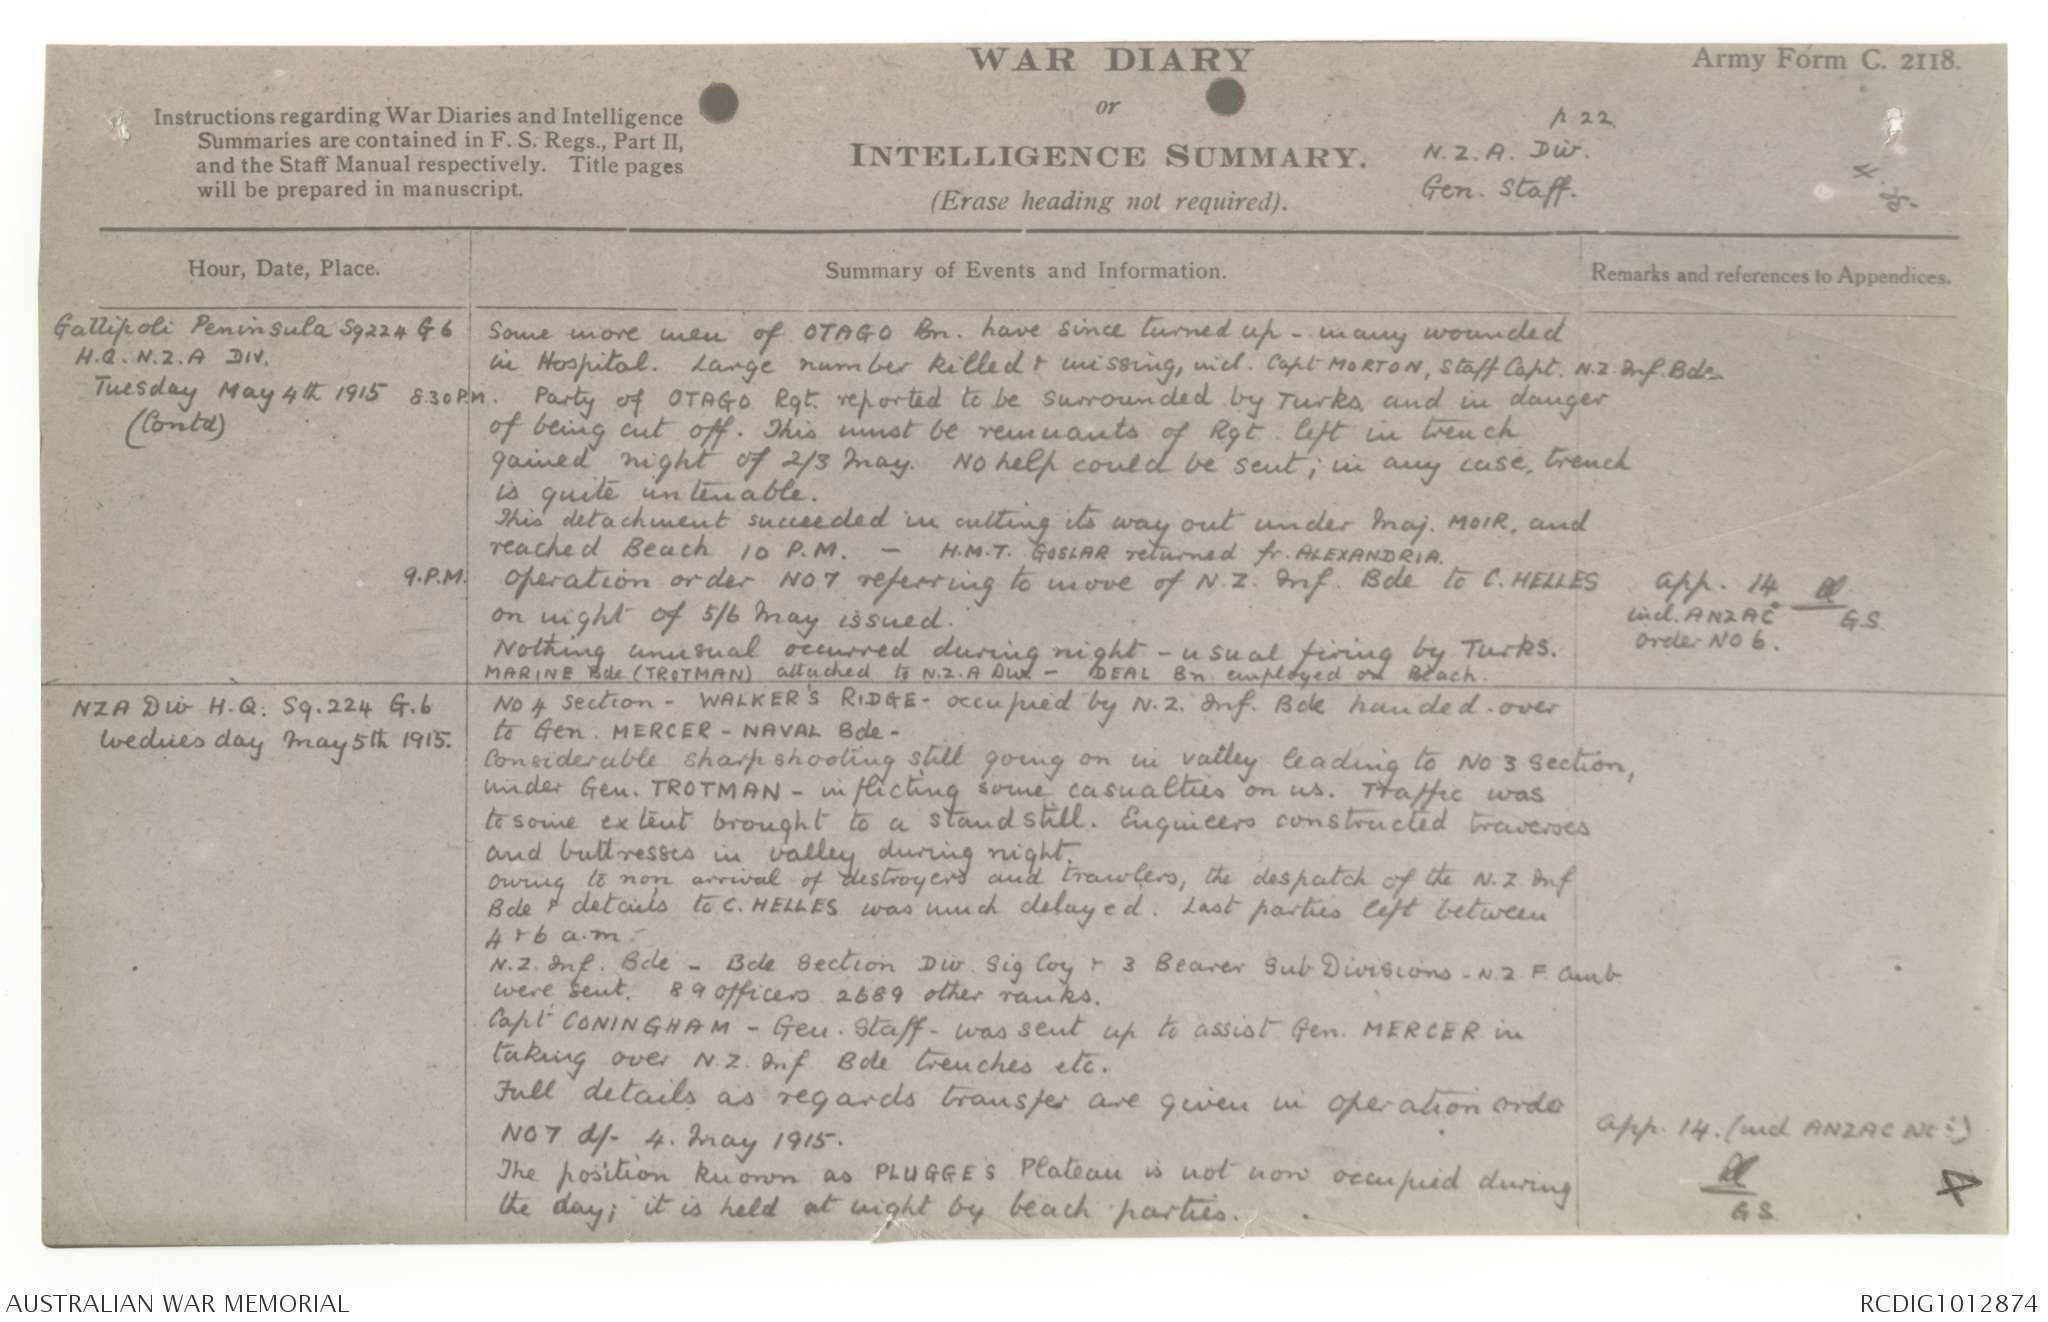 WAR DIARY
or
INTELLIGENCE SUMMARY.
(Erase heading not required).
Army Form C. 2118.
Instructions regarding War Diaries and Intelligence
Summaries are contained in F. S. Regs., Part II,
and the Staff Manual respectively. Title pages
will be prepared in manuscript.
p 22
N.Z.A. Div.
Gen. Staff.
Hour, Date, Place.
Summary of Events and Information.
Remarks and references to Appendices.
Gallipoli Peninsula Sq 224 G 6
H.Q. N.Z.A DIV.
Tuesday May 4th 1915 8.30 P.M.
(Contd)
Some more men of OTAGO Bn. have since turned up - many wounded
in Hospital. Large number killed & missing, incl. Capt MORTON, Staff Capt. N.Z. Inf. Bde
Party of OTAGO Rgt. reported to be surrounded by Turks and in danger
of being cut off. This must be remnants of Rgt. left in trench
gained night of 2/3 May. No help could be sent; in any case, trench
is quite untenable.
This detachment succeeded in cutting its way out under Maj. MOIR, and
reached Beach 10 P.M. - H.M.T. GOSLAR returned fr. ALEXANDRIA.
9.P.M.
Operation order No 7 referring to move of N.Z. Inf. Bde to C. HELLES
on night of 5/6 May issued.
App. 14
incl. ANZAC
order No 6.
GS
Nothing unusual occurred during night - usual firing by Turks.
MARINE Bde (TROTMAN) attached to N.Z.A Div - DEAL Bn employed on Beach.
NZA Div H.Q. Sq. 224 G.6
Wednesday May 5th 1915.
No 4 Section - WALKER'S RIDGE - occupied by N.Z. Inf. Bde handed over
to Gen. MERCER - NAVAL Bde -
Considerable sharpshooting still going on in valley leading to No 3 Section,
under Gen. TROTMAN - inflicting some casualties on us. Traffic was
to some extent brought to a standstill. Engineers constructed traverses
and buttresses in valley during night.
Owing to non arrival of destroyers and trawlers, the despatch of the N.Z Inf
Bde & details to C. HELLES was much delayed. Last parties left between
4 & 6 a.m. -
N.Z. Inf. Bde - Bde Section Div. Sig Coy & 3 Bearer Sub Divisions - N.Z F. Amb
were sent. 89 officers 2689 other ranks.
Capt CONINGHAM - Gen. Staff - was sent up to assist Gen. MERCER in
taking over N.Z. Inf Bde trenches etc.
Full details as regards transfer are given in operation order
No 7 d/- 4. May 1915.
App. 14. (incl ANZAC No
GS
The position known as PLUGGE'S Plateau is not now occupied during
the day; it is held at night by beach parties.
AUSTRALIAN WAR MEMORIAL
RCDIG1012874